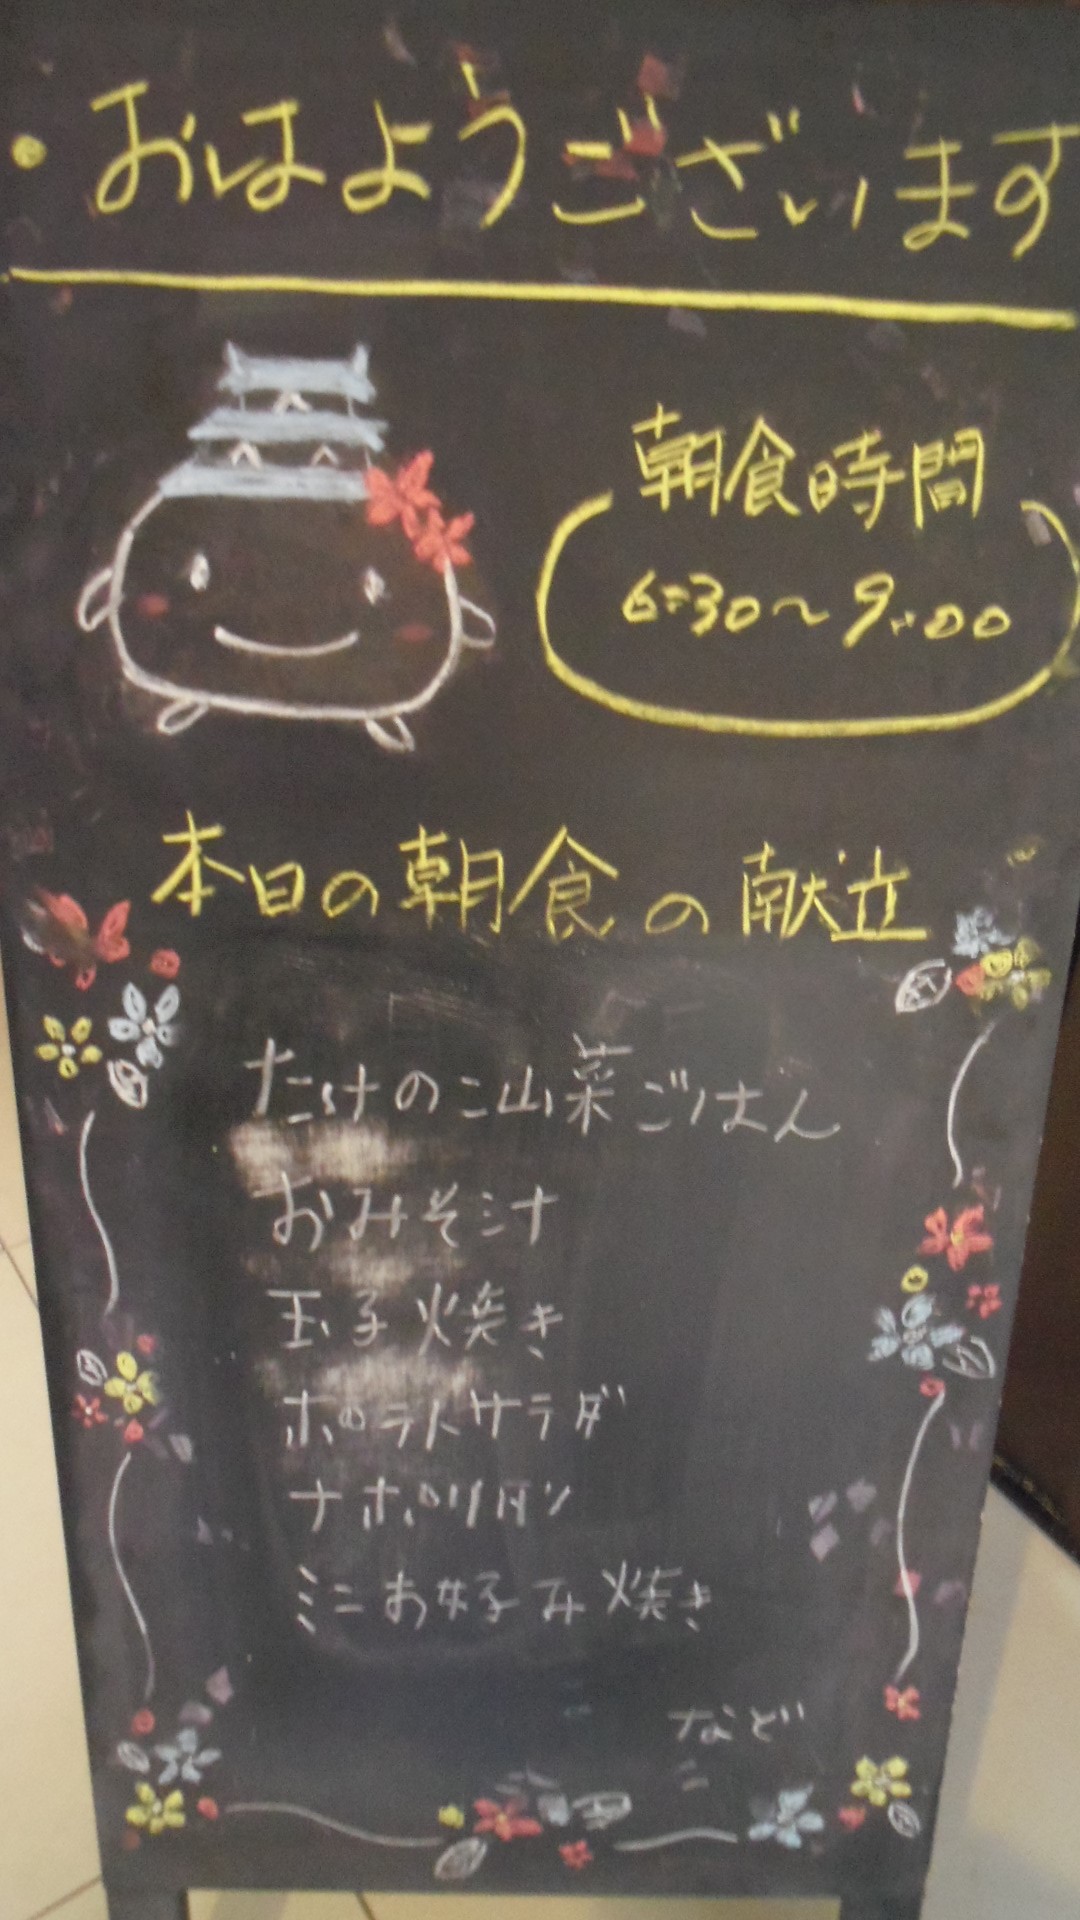 ・おはようございます
朝食時間
6:30〜9:00
本日の朝食の献立
たけのこ山菜ごはん
おみそ汁
玉子焼き
ポテトサラダ
ナポリタン
ミニお好み焼き
など